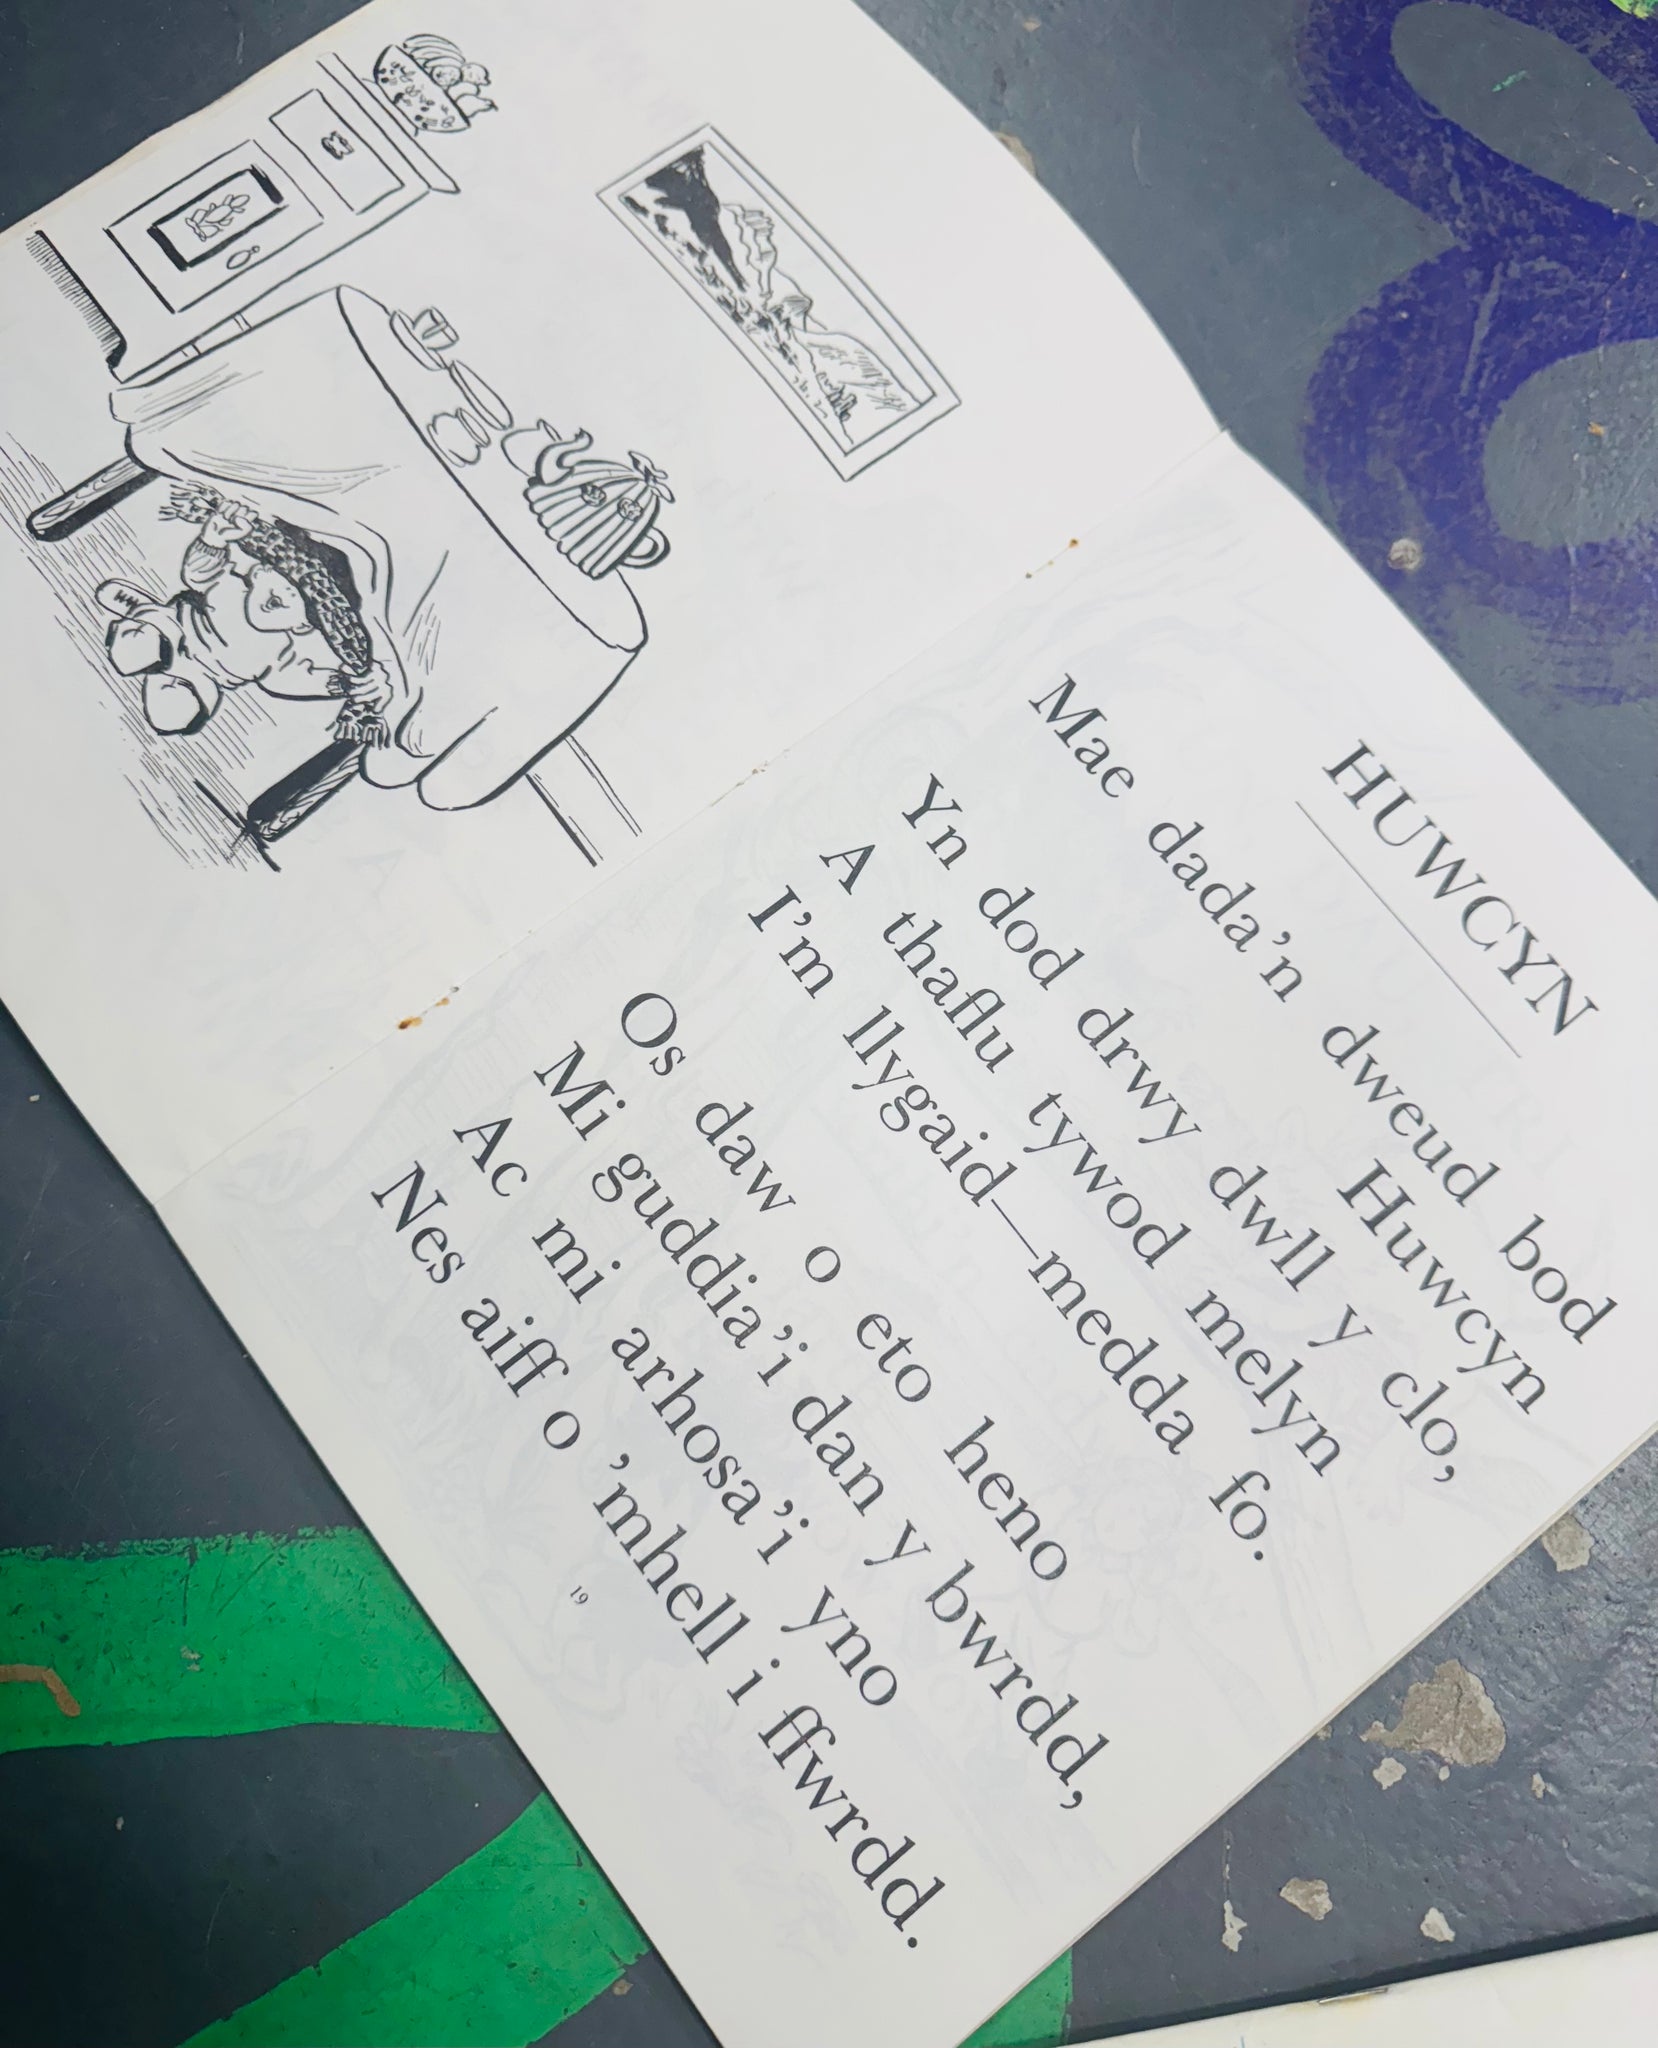 HUWCYN
Mae dada'n dweud bod Huwcyn
Yn dod drwy dwll y clo,
A thaflu tywod melyn
I'm llygaid—medda fo.
Os daw o eto heno
Mi guddia'i dan y bwrdd,
Ac mi arhosa'i yno
Nes aiff o 'mhell i ffwrdd.
19